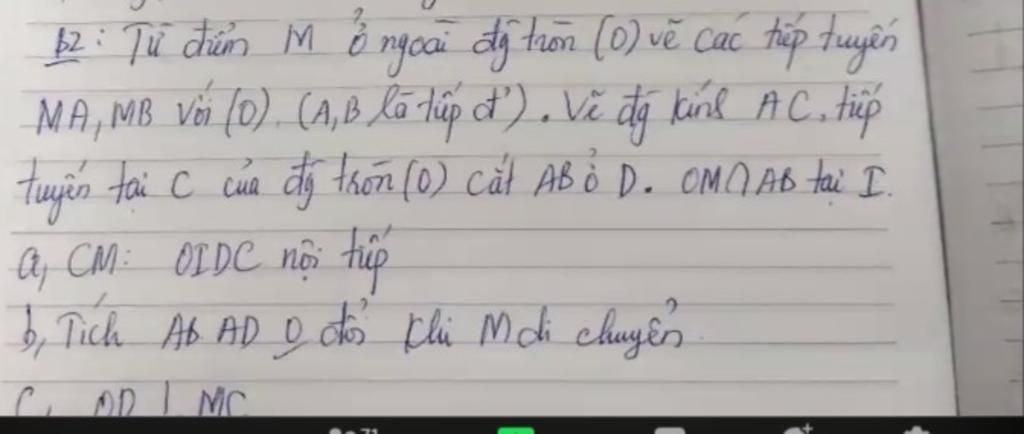 b2: Từ điểm M ở ngoài đg tròn (O) vẽ các tiếp tuyến
MA, MB với (O). (A, B là tiếp đ'). Vẽ đg kính AC, tiếp
tuyến tại C của đg tròn (O) cắt AB ở D. OM∩AB tại I.
a, CM: OIDC nội tiếp
b, Tích AB AD O đổi khi M di chuyển.
C, OD ⊥ MC
71